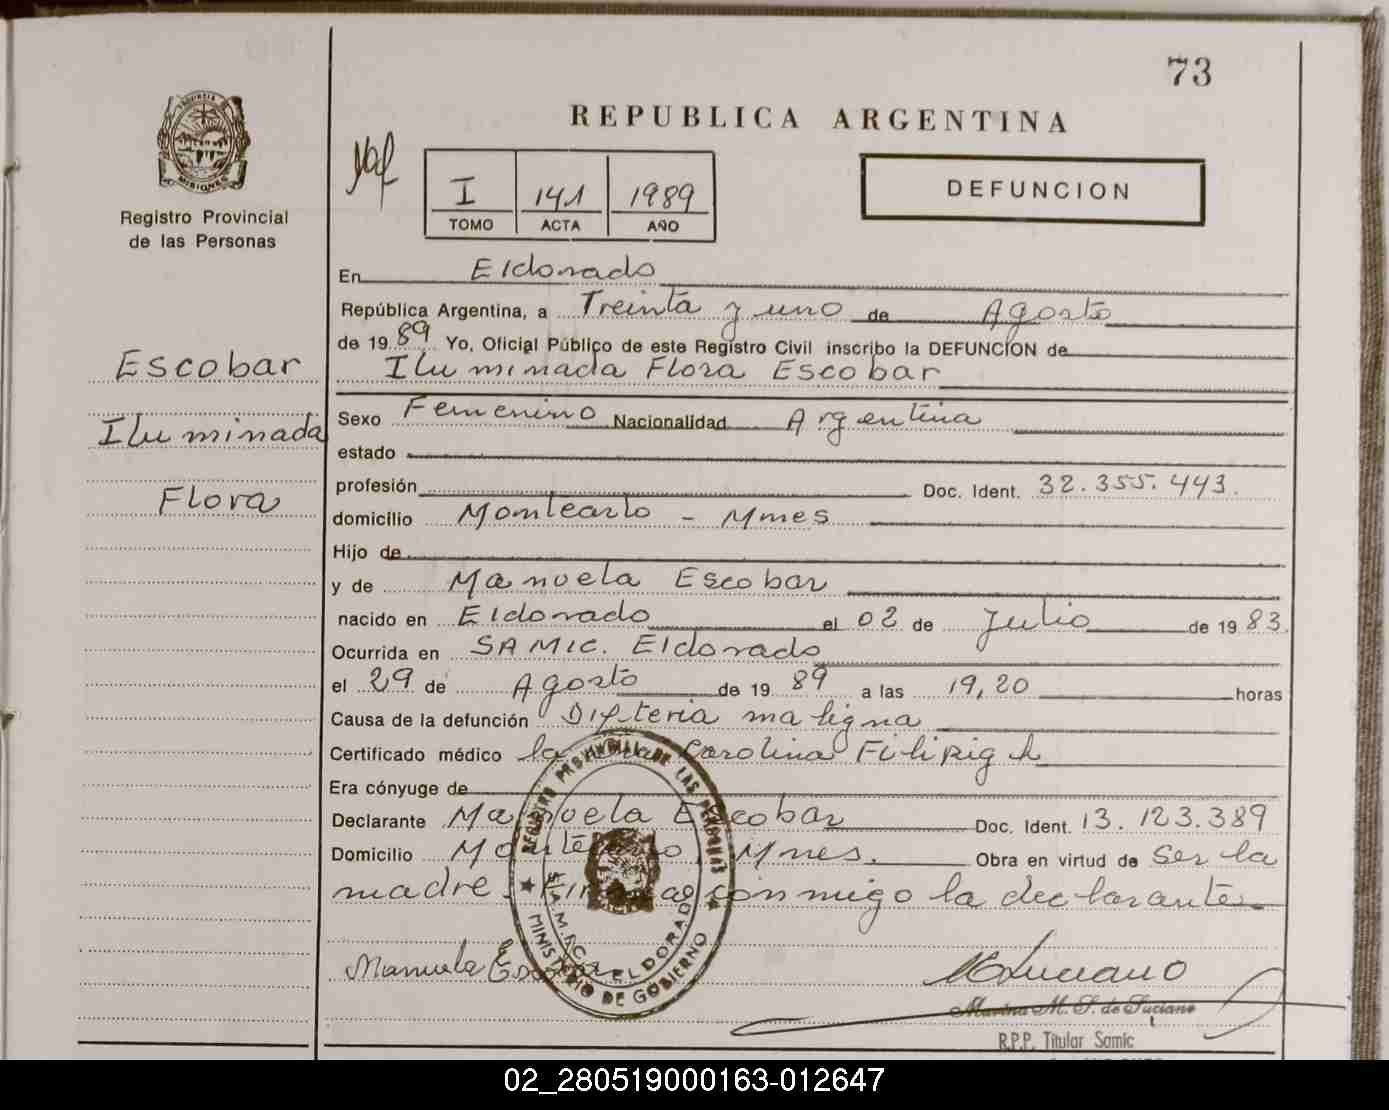 73
REPUBLICA ARGENTINA
PROVINCIA DE
MISIONES
Registro Provincial
de las Personas
I 141 1989
TOMO ACTA AÑO
DEFUNCION
Escobar
Iluminada
Flora
En Eldorado
República Argentina, a Treinta y uno de Agosto
de 1989 Yo, Oficial Público de este Registro Civil inscribo la DEFUNCION de
Iluminada Flora Escobar
Sexo Femenino Nacionalidad Argentina
estado
profesión Doc. Ident. 32.355.443.
domicilio Montecarlo - Mnes
Hijo de
y de Manuela Escobar
nacido en Eldorado el 02 de Julio de 1983.
Ocurrida en SAMIC. Eldorado
el 29 de Agosto de 1989 a las 19,20 horas
Causa de la defunción Difteria maligna
Certificado médico la Carolina
Era cónyuge de
Declarante Manuela Escobar Doc. Ident. 13.123.389
Domicilio Montecarlo, Mnes. Obra en virtud de ser la
madre. Firma conmigo la declarante
REGISTRO PROVINCIAL DE LAS PERSONAS
S.A.M.I.C. ELDORADO
MINISTERIO DE GOBIERNO
Manuela Escobar
Marina M. S. de Luciano
R.P.P. Titular Samic
02_280519000163-012647